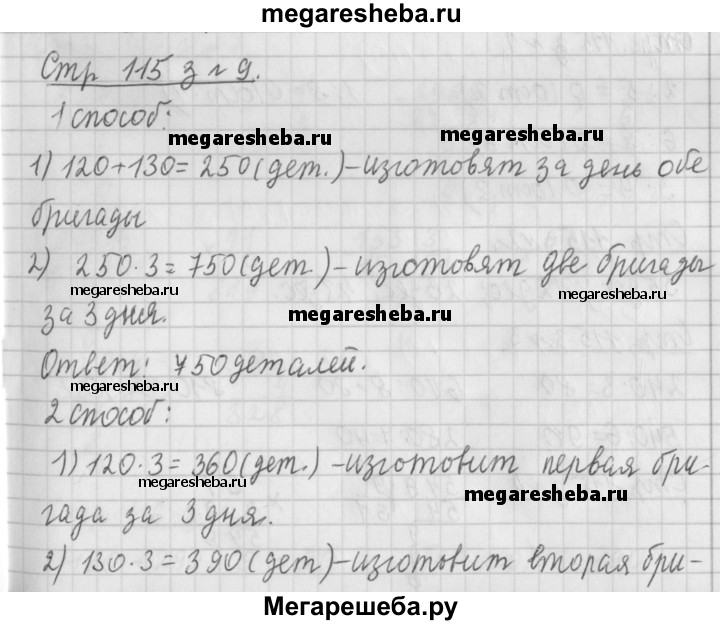 megaresheba.ru
Стр 115 з г 9.
1 способ:
megaresheba.ru megaresheba.ru
1) 120+130= 250(дет.)-изготовят за день обе
бригады
2) 250·3=750(дет.)-изготовят две бригады
megaresheba.ru megaresheba.ru
за 3 дня. megaresheba.ru
Ответ: 750 деталей.
megaresheba.ru
2 способ:
1) 120·3=360(дет.) -изготовит первая бри-
megaresheba.ru megaresheba.ru
гада за 3 дня.
2) 130·3=390(дет)-изготовит вторая бри-
Мегарешеба.ру